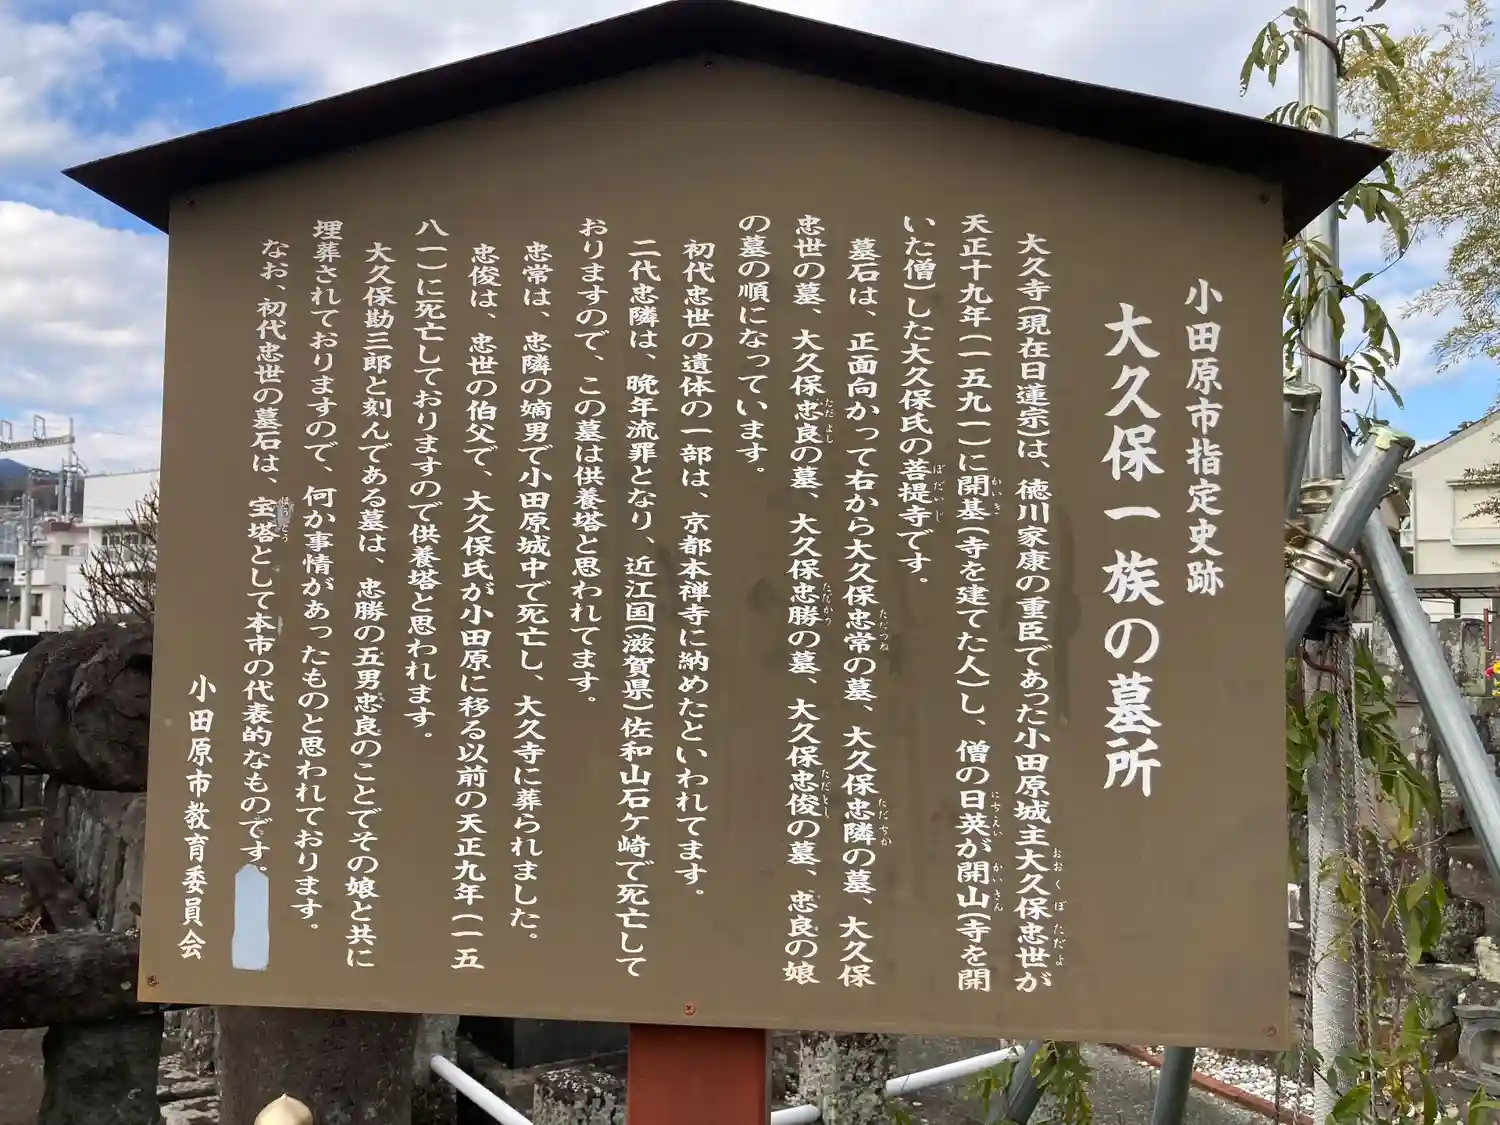 小田原市指定史跡
大久保一族の墓所
大久寺(現在日蓮宗)は、徳川家康の重臣であった小田原城主大久保忠世が
天正十九年(一五九一)に開基(寺を建てた人)し、僧の日英が開山(寺を開
いた僧)した大久保氏の菩提寺です。
墓石は、正面向かって右から大久保忠常の墓、大久保忠隣の墓、大久保
忠世の墓、大久保忠良の墓、大久保忠勝の墓、大久保忠俊の墓、忠良の娘
の墓の順になっています。
初代忠世の遺体の一部は、京都本禅寺に納めたといわれてます。
二代忠隣は、晩年流罪となり、近江国(滋賀県)佐和山石ケ崎で死亡して
おりますので、この墓は供養塔と思われてます。
忠常は、忠隣の嫡男で小田原城中で死亡し、大久寺に葬られました。
忠俊は、忠世の伯父で、大久保氏が小田原に移る以前の天正九年(一五
八一)に死亡しておりますので供養塔と思われます。
大久保勘三郎と刻んである墓は、忠勝の五男忠良のことでその娘と共に
埋葬されておりますので、何か事情があったものと思われております。
なお、初代忠世の墓石は、宝塔として本市の代表的なものです。
小田原市教育委員会